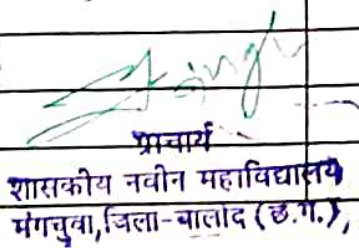 प्राचार्य
शासकीय नवीन महाविद्यालय
मंगचुवा, जिला-बालोद (छ.ग.),